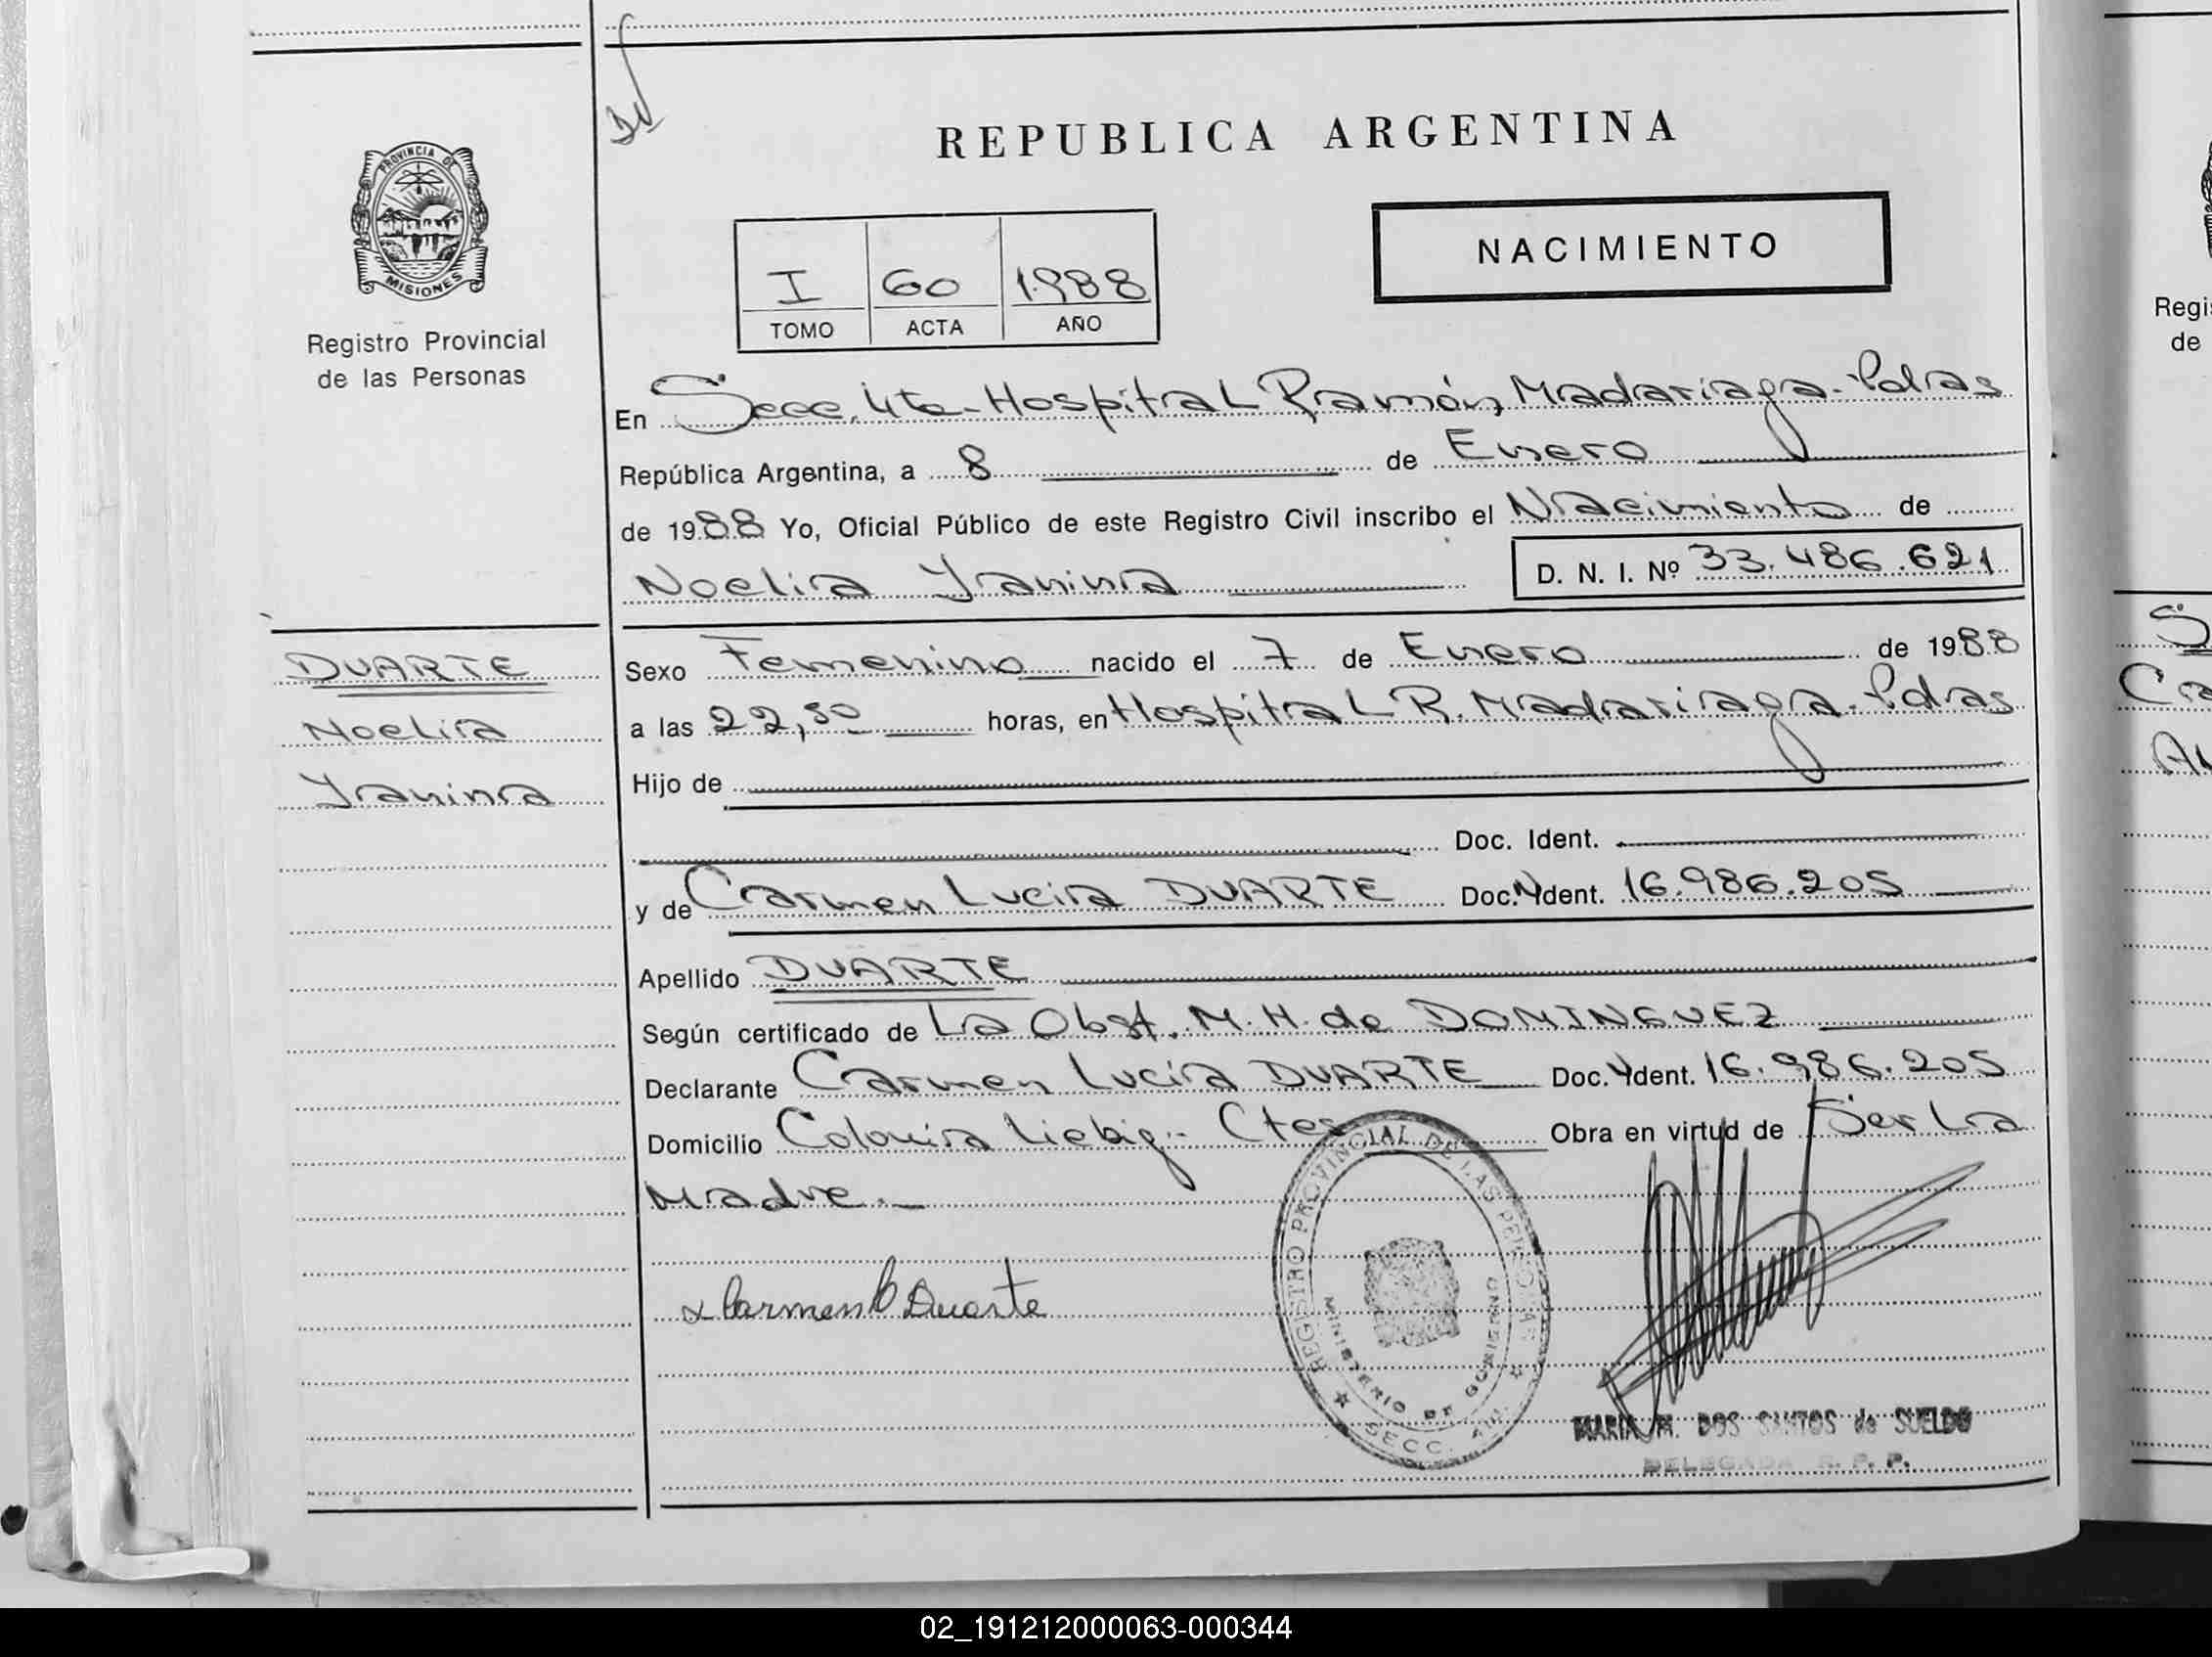 REPUBLICA ARGENTINA
PROVINCIA DE MISIONES
Registro Provincial
de las Personas
NACIMIENTO
I 60 1988
TOMO ACTA AÑO
En Secc. 4ta - Hospital Ramón Madariaga - Pdas
República Argentina, a 8 de Enero
de 1988 Yo, Oficial Público de este Registro Civil inscribo el Nacimiento de
Noelia Yanina D. N. I. Nº 33.486.621
DUARTE
Noelia
Yanina
Sexo Femenino nacido el 7 de Enero de 1988
a las 22,50 horas, en Hospital R. Madariaga - Pdas
Hijo de
Doc. Ident.
y de Carmen Lucia DUARTE Doc. Ident. 16.986.205
Apellido DUARTE
Según certificado de La Obst. M. H. de DOMINGUEZ
Declarante Carmen Lucía DUARTE Doc. Ident. 16.986.205
Domicilio Colonia Liebig - Ctes Obra en virtud de Ser La
Madre.-
Carmen L Duarte
REGISTRO PROVINCIAL DE LAS PERSONAS
MINISTERIO DE GOBIERNO
SECC. 4ta.
MARIA M. DOS SANTOS de SUELDO
DELEGADA R. P. P.
Regi
de
S
Ca
Al
02_191212000063-000344